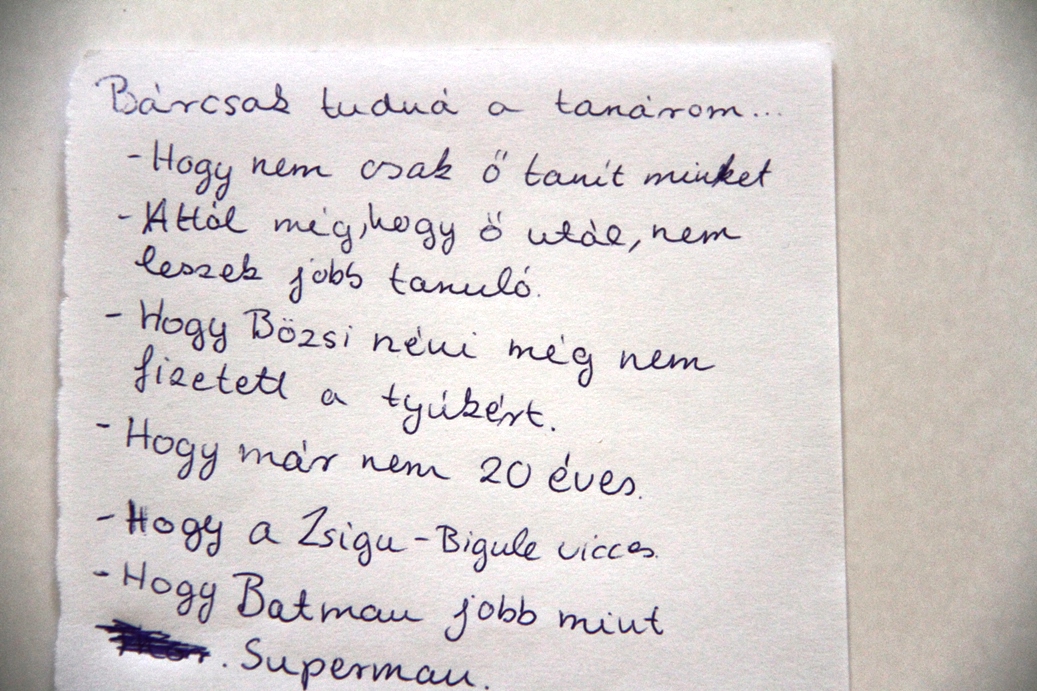 Bárcsak tudná a tanárom...
- Hogy nem csak ő tanít minket
- Attól még, hogy ő utál, nem
leszek jobb tanuló.
- Hogy Bözsi néni még nem
fizetett a tyúkért.
- Hogy már nem 20 éves.
- Hogy a Zsigu - Bigule vicces.
- Hogy Batman jobb mint
. Superman.